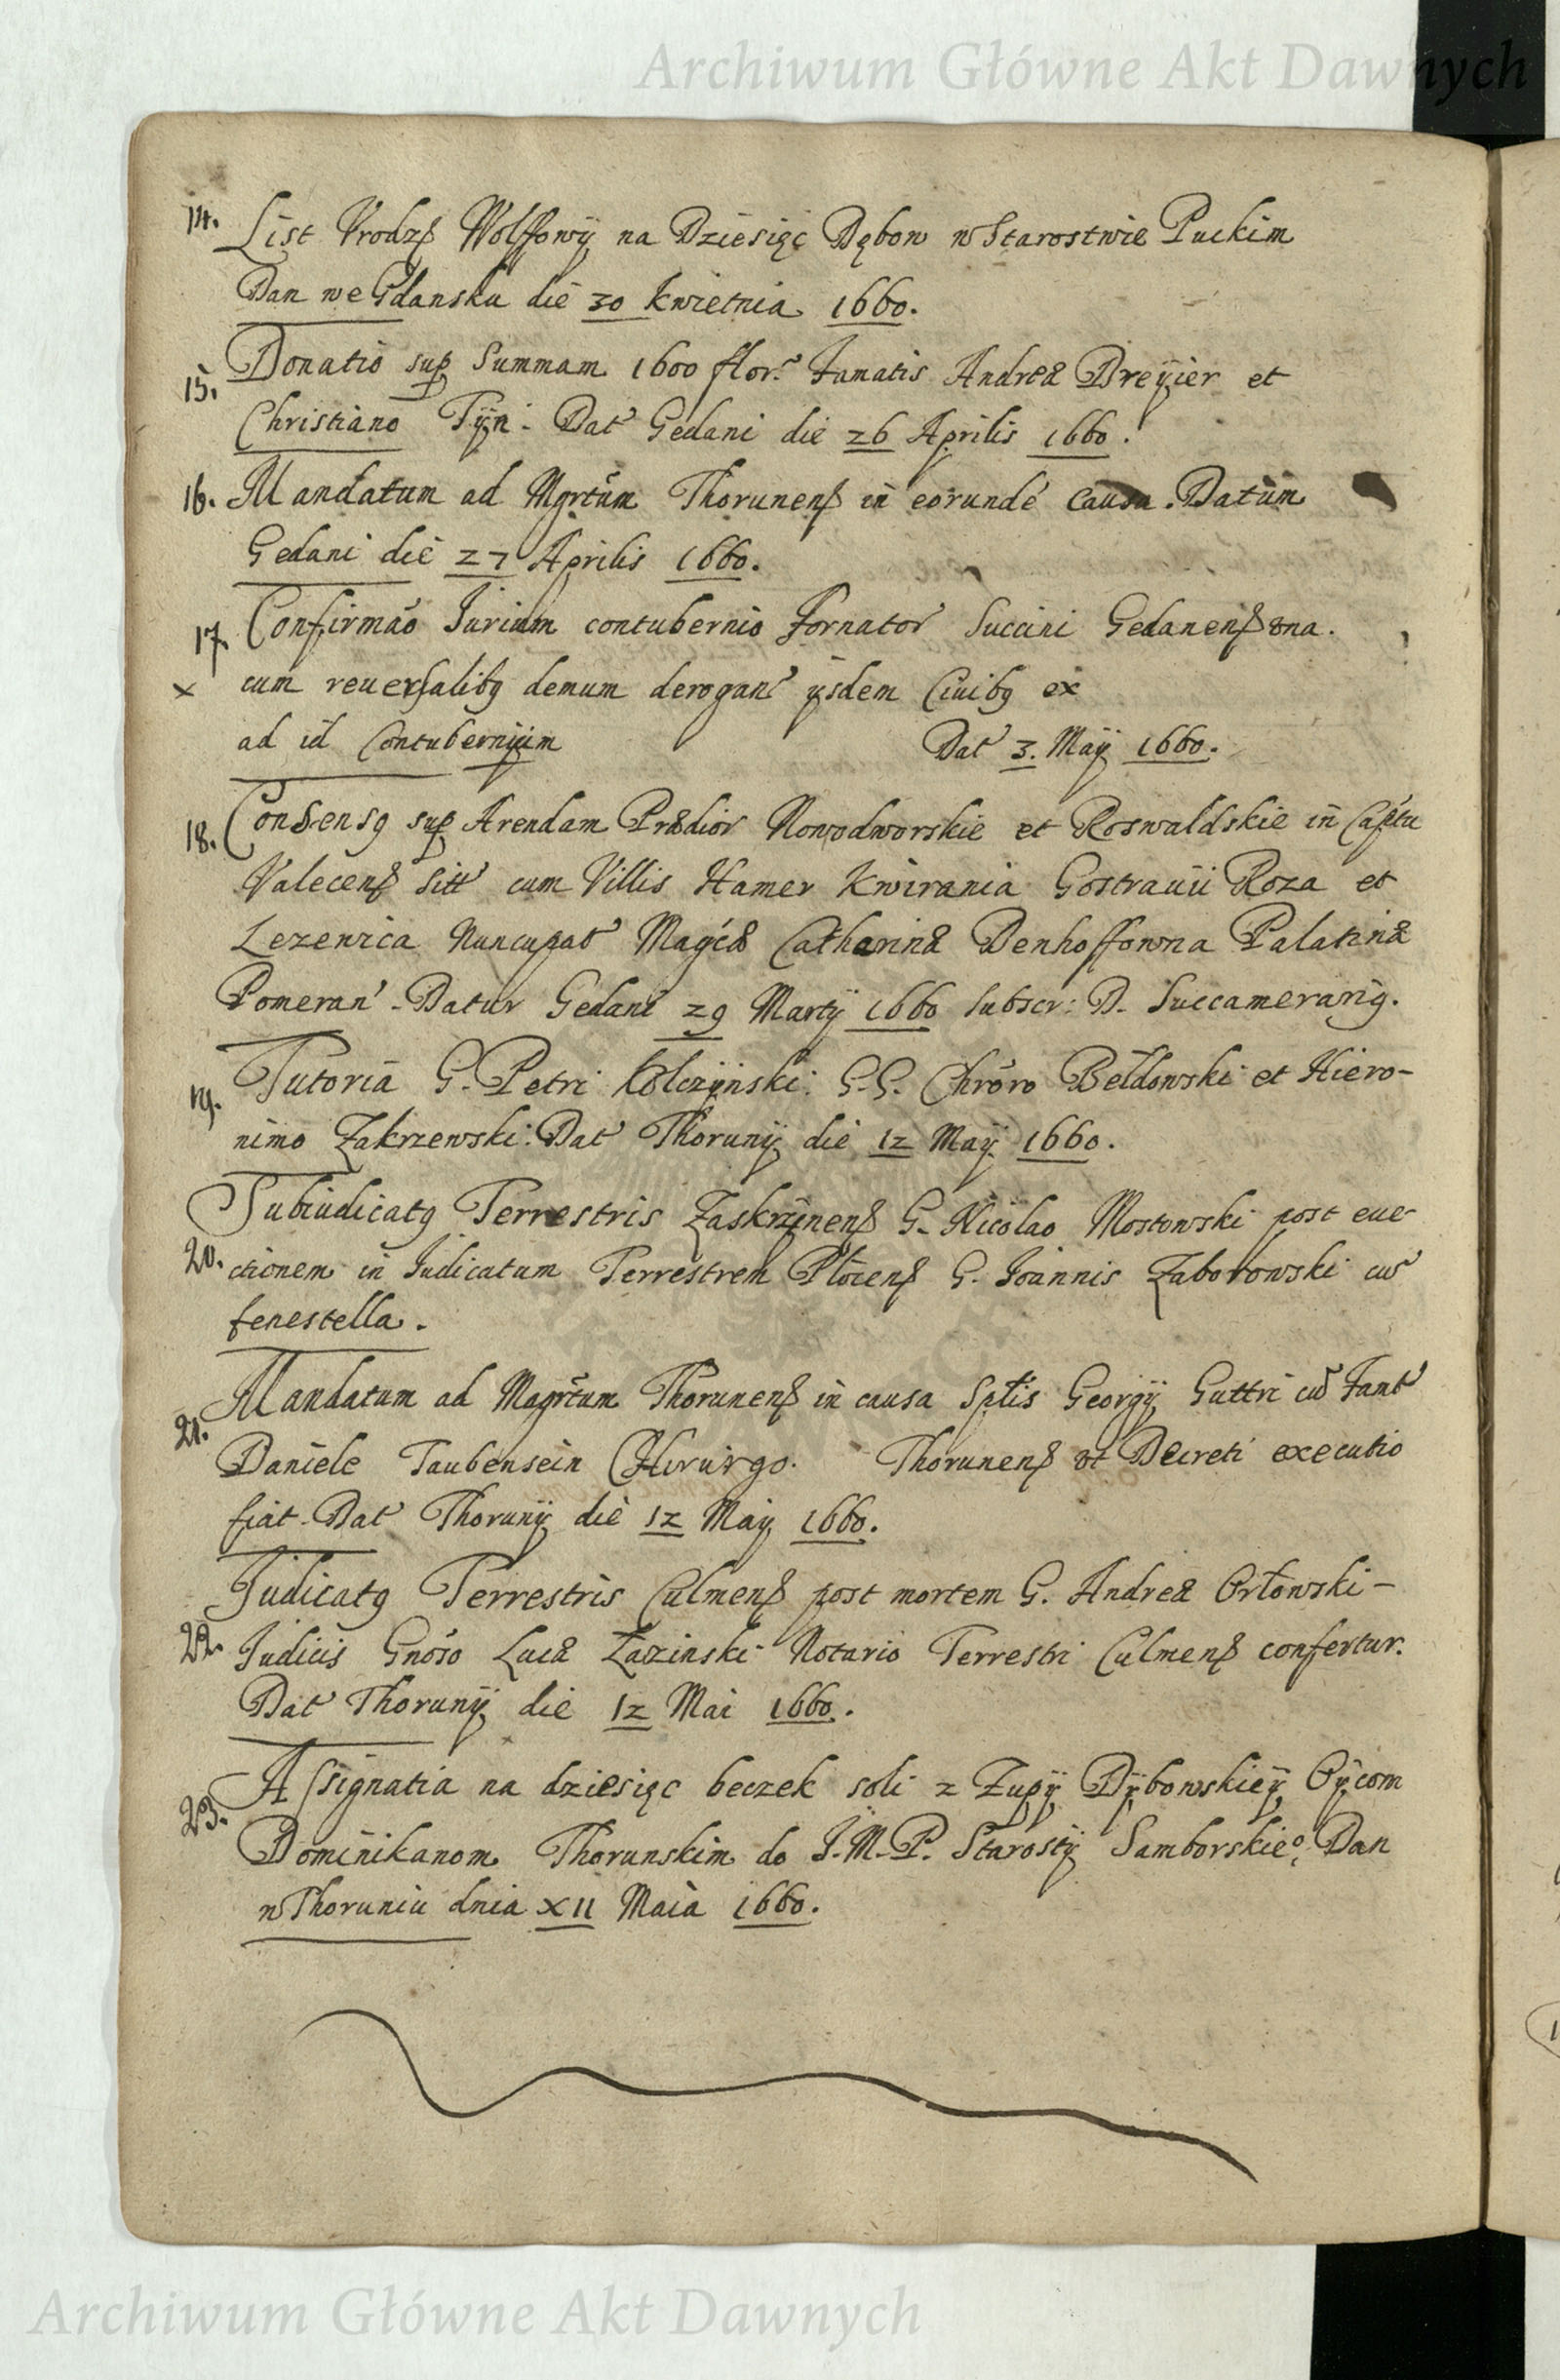 Archiwum Główne Akt Dawnych
14. List Vrodzß Wolffowÿ na Dziesięć Dębow w Starostwie Puckim
Dan we Gdansku die 30 kwietnia 1660.
15. Donatio sup Summam 1600 flor. Famatis Andreæ Dreÿier et
Christiano Tÿn. Dat Gedani die 26 Aprilis 1660.
16. Mandatum ad Mgrtum Thorunenß in eorundē causa. Datum
Gedani die 27 Aprilis 1660.
17. Confirmão Iurium contubernio Tornator Succini Gedanenß
x cum reuersalibg demum derogani ÿsdem Ciuibg ex
ad id Contubernÿum Dat 3. Maÿ 1660.
18. Consensg sup Arendam Prædior Nowodworskie et Roswaldskie in Captu
Valecenß sitt cum Villis Hamer Kwirania Gostrauii Roza et
Lezenica Nuncupat Magcæ Catharinæ Denhoffowna Palatinæ
Pomeran. Datur Gedani 29 Martÿ 1660 subscr: D. Succamerarig.
19. Tutoria G. Petri Kolczÿnski: G.G. Chrõro Bełdowski et Hiero-
nimo Zakrzewski: Dat Thorunÿ die 12 Maÿ 1660.
20. Subiudicatg Terrestris Zaskrzÿnenß G. Nicolao Mostowski post eue-
ctionem in Iudicatum Terrestrem Płocenß G. Ioannis Zaborowski cu
fenestella.
21. Mandatum ad Magrtum Thorunenß in causa Sptis Georgÿ Guttri cu Famt
Daniele Taubensein Chirurgo. Thorunenß vt Decreti executio
fiat. Dat Thorunÿ die 12 Maÿ 1660.
22. Iudicatg Terrestris Culmenß post mortem G. Andreæ Orłowski-
Iudicis Gnõso Lucæ Łazinski Notario Terrestri Culmenß confertur.
Dat Thorunÿ die 12 Mai 1660.
23. Assignatia na dziesięc beczek soli z Zupÿ Dÿbowskieÿ Oÿcom
Dominikanom Thorunskim do J.M.P. Starostÿ Samborskieº. Dan
w Thoruniu dnia XII Maia 1660.
Archiwum Główne Akt Dawnych